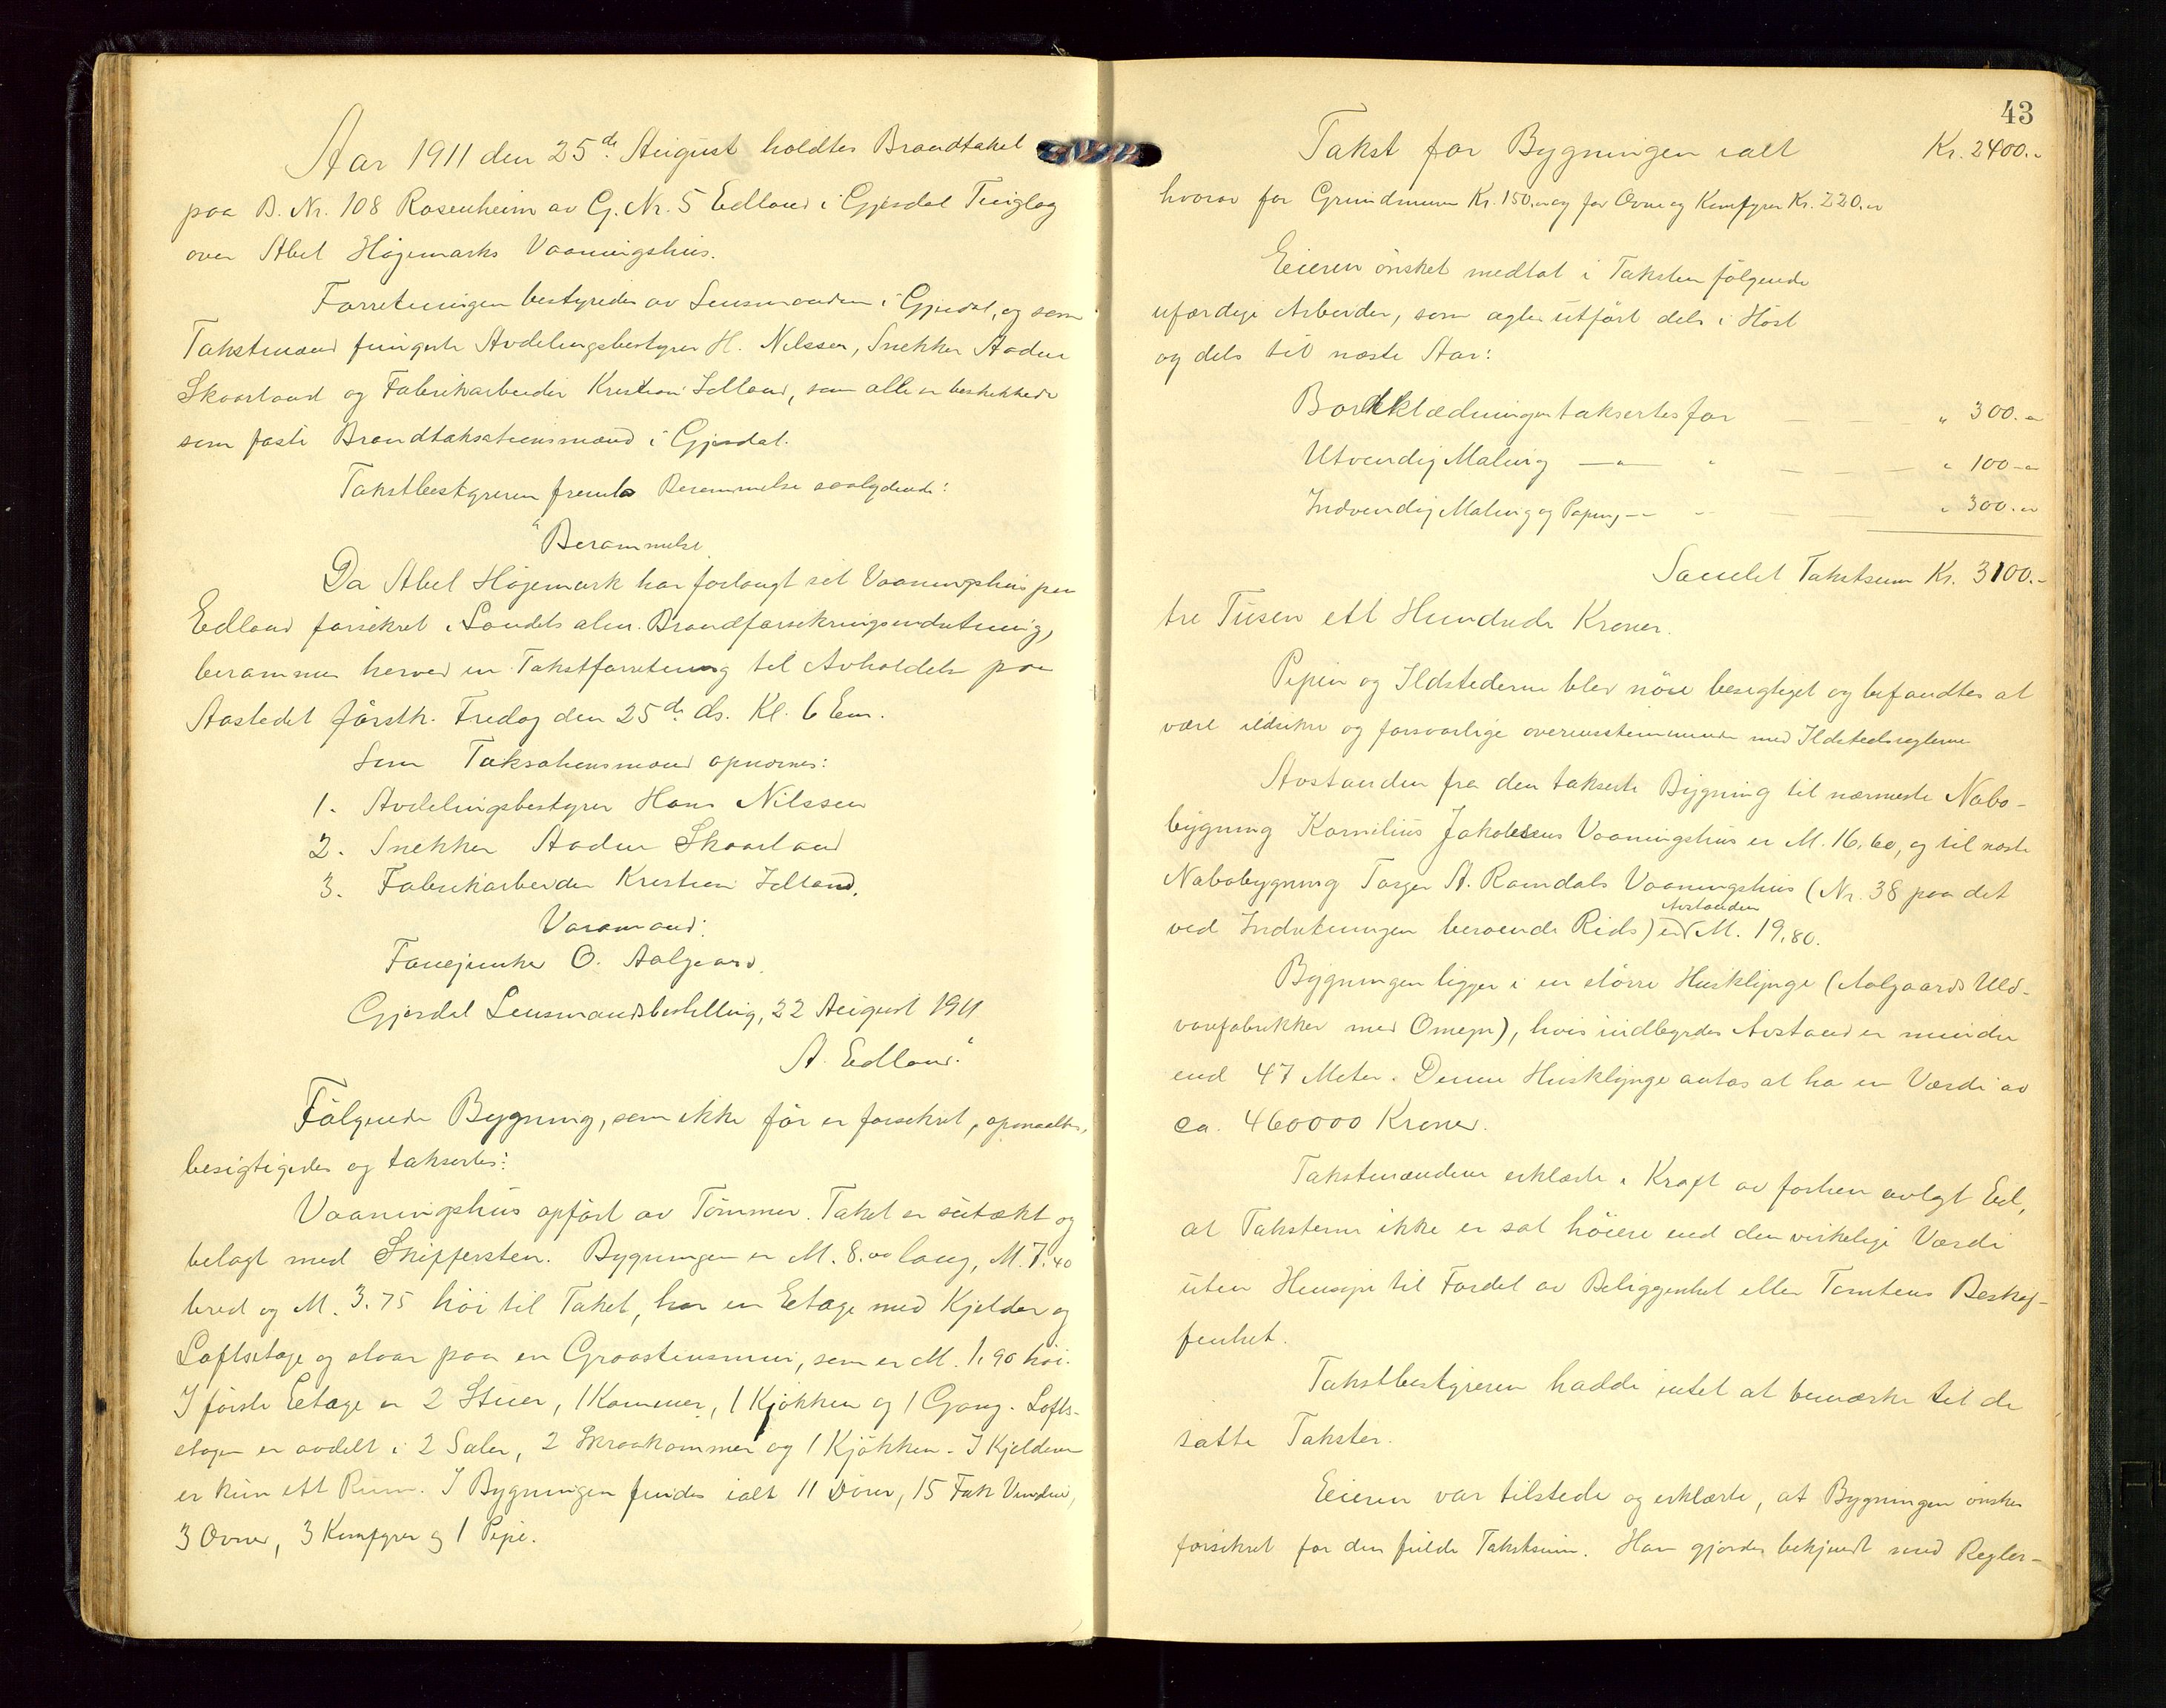 Aar 1911 den 25de August holdtes Brandtakst
paa B. Nr. 108 Rosenheim av G. Nr. 5 Edland i Gjesdal Tinglag
over Abel Höjemarks Vaaningshus.
Forretningen bestyredes av Lensmanden i Gjesdal, og som
Takstmænd fungerte Avdelingsbestyrer H. Nilssen, Snekker Aadne
Skaarland og Fabrikarbeider Kristian Jelland, som alle er beskikkede
som faste Brandtakstationsmænd i Gjesdal.
Takstbestyreren fremla Berammelse saalydende:
"Berammelse
Da Abel Höjemark har forlangt sit Vaaningshus paa
Edland forsikret i Landets alm. Brandforsikringsindretning,
berammes herved en Takstforretning til Avholdelse paa
Aastedet förstk. Fredag den 25de ds. Kl. 6 Em.
Som Taksationsmænd opnævnes:
1. Avdelingsbestyrer Hans Nilssen
2. Snekker Aadne Skaarland
3. Fabrikarbeider Kristian Jelland.
Varamand:
Fanejunker O. Aalgaard.
Gjesdal Lensmandsbestilling, 22 August 1911
A. Edland."
Fölgende Bygning, som ikke för er forsikret, opmaaltes,
besigtigedes og taksertes:
Vaaningshus opfört av Tömmer. Taket er sutækt og
belagt med Skiffersten. Bygningen er M. 8.00 lang, M. 7.40
bred og M. 3.75 höi til Taket, har en Etage med Kjelder og
Loftsetage og staar paa en Graastensmur, som er M. 1.90 höi.
I förste Etage er 2 Stuer, 1 Kammer, 1 Kjökken og 1 Gang. Lofts-
etagen er avdelt i 2 Saler, 2 Skraakammer og 1 Kjökken. I Kjelderen
er kun ett Rum. I Bygningen findes ialt 11 Dörer, 15 Fak Vinduer,
3 Ovner, 3 Komfyrer og 1 Pipe.
43
Takst for Bygningen ialt Kr. 2400.-
hvorav for Grundmuren Kr. 150.- og for Ovne og Komfyrer Kr. 220.-
Eieren önsket medtat i Taksten fölgende
ufærdige Arbeider, som agtes utfört dels i Höst
og dels til næste Aar:
Bordklædningen taksertes for — — — " 300.-
Utvendig Maling —"— " — — — " 100.-
Indvendig Maling og Papir —"— " — " 300.-
Samlet Takstsum Kr. 3100.-
tre Tusen ett Hundrede Kroner.
Pipen og Ildstederne blev nöie besigtiget og befandtes at
være ildsikre og forsvarlige overensstemmende med Ildstedsreglerne
Avstanden fra den takserte Bygning til nærmeste Nabo-
bygning Kornilius Jakobsens Vaaningshus er M. 16,60, og til næste
Nabobygning Torger A. Ramdals Vaaningshus (Nr. 38 paa det
ved Indretningen beroende Rids) er Avstanden M. 19,80.
Bygningen ligger i en större Husklynge (Aalgaards Uld-
varefabrikker med Omegn), hvis indbyrdes Avstand er mindre
end 47 Meter. Denne Husklynge antas at ha en Værdi av
ca. 460000 Kroner.
Takstmændene erklærte i Kraft av forhen avlagt Ed,
at Taksterne ikke er sat höiere end den virkelige Værdi
uten Hensyn til Fordel av Beliggenhet eller Tomtens Beskaf-
fenhet.
Takstbestyreren hadde intet at bemærke til de
satte Takster.
Eieren var tilstede og erklærte, at Bygningen önskes
forsikret for den fulde Takstsum. Han gjordes bekjendt med Regler-